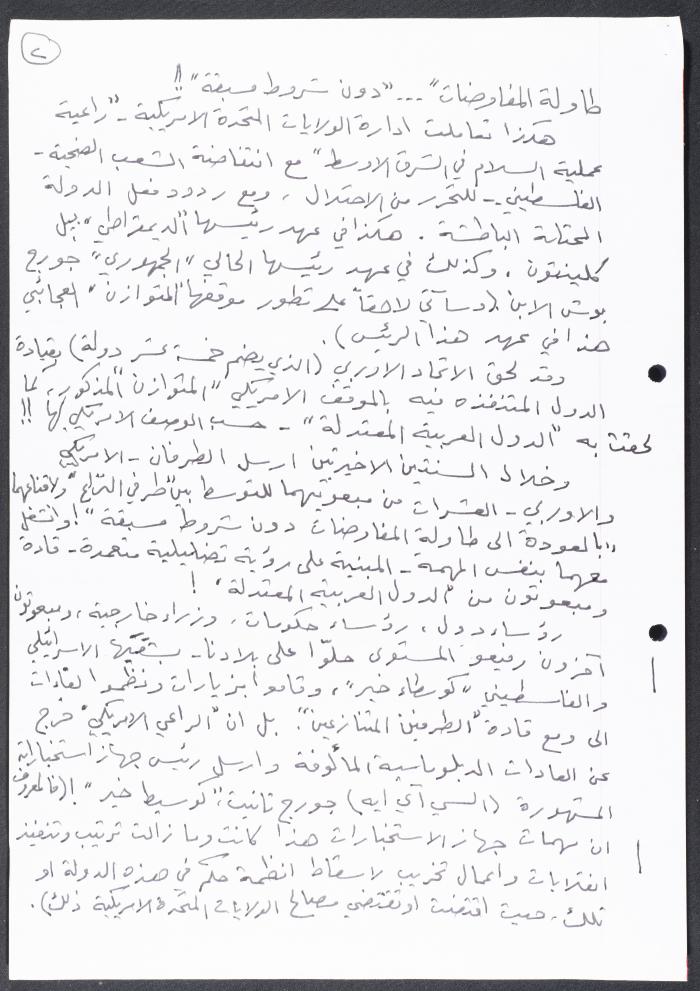 ٢
طاولة المفاوضات"... "دون شروط مسبقة"!!
هكذا تعاملت ادارة الولايات المتحدة الامريكية – "راعية
عملية السلام في الشرق الاوسط" مع انتفاضة الشعب الضحية –
الفلسطيني – للتحرر من الاحتلال، ومع ردود فعل الدولة
المحتلة الباطشة. هكذا في عهد رئيسها "الديمقراطي" بيل
كلينتون، وكذلك في عهد رئيسها الحالي "الجمهوري" جورج
بوش الابن (وسآتي لاحقاً على تطور موقفها "المتوازن" العجائبي
هذا في عهد هذا الرئيس).
وقد لحق الاتحاد الاوربي (الذي يضم خمسة عشر دولة) بقيادة
الدول المتنفذه فيه بالموقف الامريكي "المتوازن" المذكور، كما
لحقت به "الدول العربية المعتدلة" – حسب الوصف الامريكي لها!!
وخلال السنتين الاخيرتين ارسل الطرفان – الامريكي
والاوربي – العشرات من مبعوثيهما للتوسط بين "طرفي النزاع" ولاقناعهما
"بالعودة الى طاولة المفاوضات دون شروط مسبقة"! وانشغل
معهما بنفس المهمة – المبنية على رؤية تضليلية متعمدة – قادة
ومبعوثون من "الدول العربية المعتدلة"!
رؤساء دول، رؤساء حكومات، وزراء خارجية، ومبعوثون
آخرون رفيعو المستوى حلّوا على بلادنا – بشقيّها الاسرائيلي
والفلسطيني "كوسطاء خير"، وقاموا بزيارات ونظموا لقاءات
الى ومع قادة "الطرفين المتنازعين". بل ان "الراعي الامريكي" خرج
عن العادات الدبلوماسية المألوفة وارسل رئيس جهاز استخباراته
المشهورة (السي آي ايه) جورج تانيت، "كوسيط خير"! (فالمعروف
ان مهمات جهاز الاستخبارات هذا كانت وما زالت ترتيب وتنفيذ
انقلابات واعمال تخريب لاسقاط انظمة حكم في هذه الدولة او
تلك، حيث اقتضت او تقتضي مصالح الولايات المتحدة الامريكية ذلك).